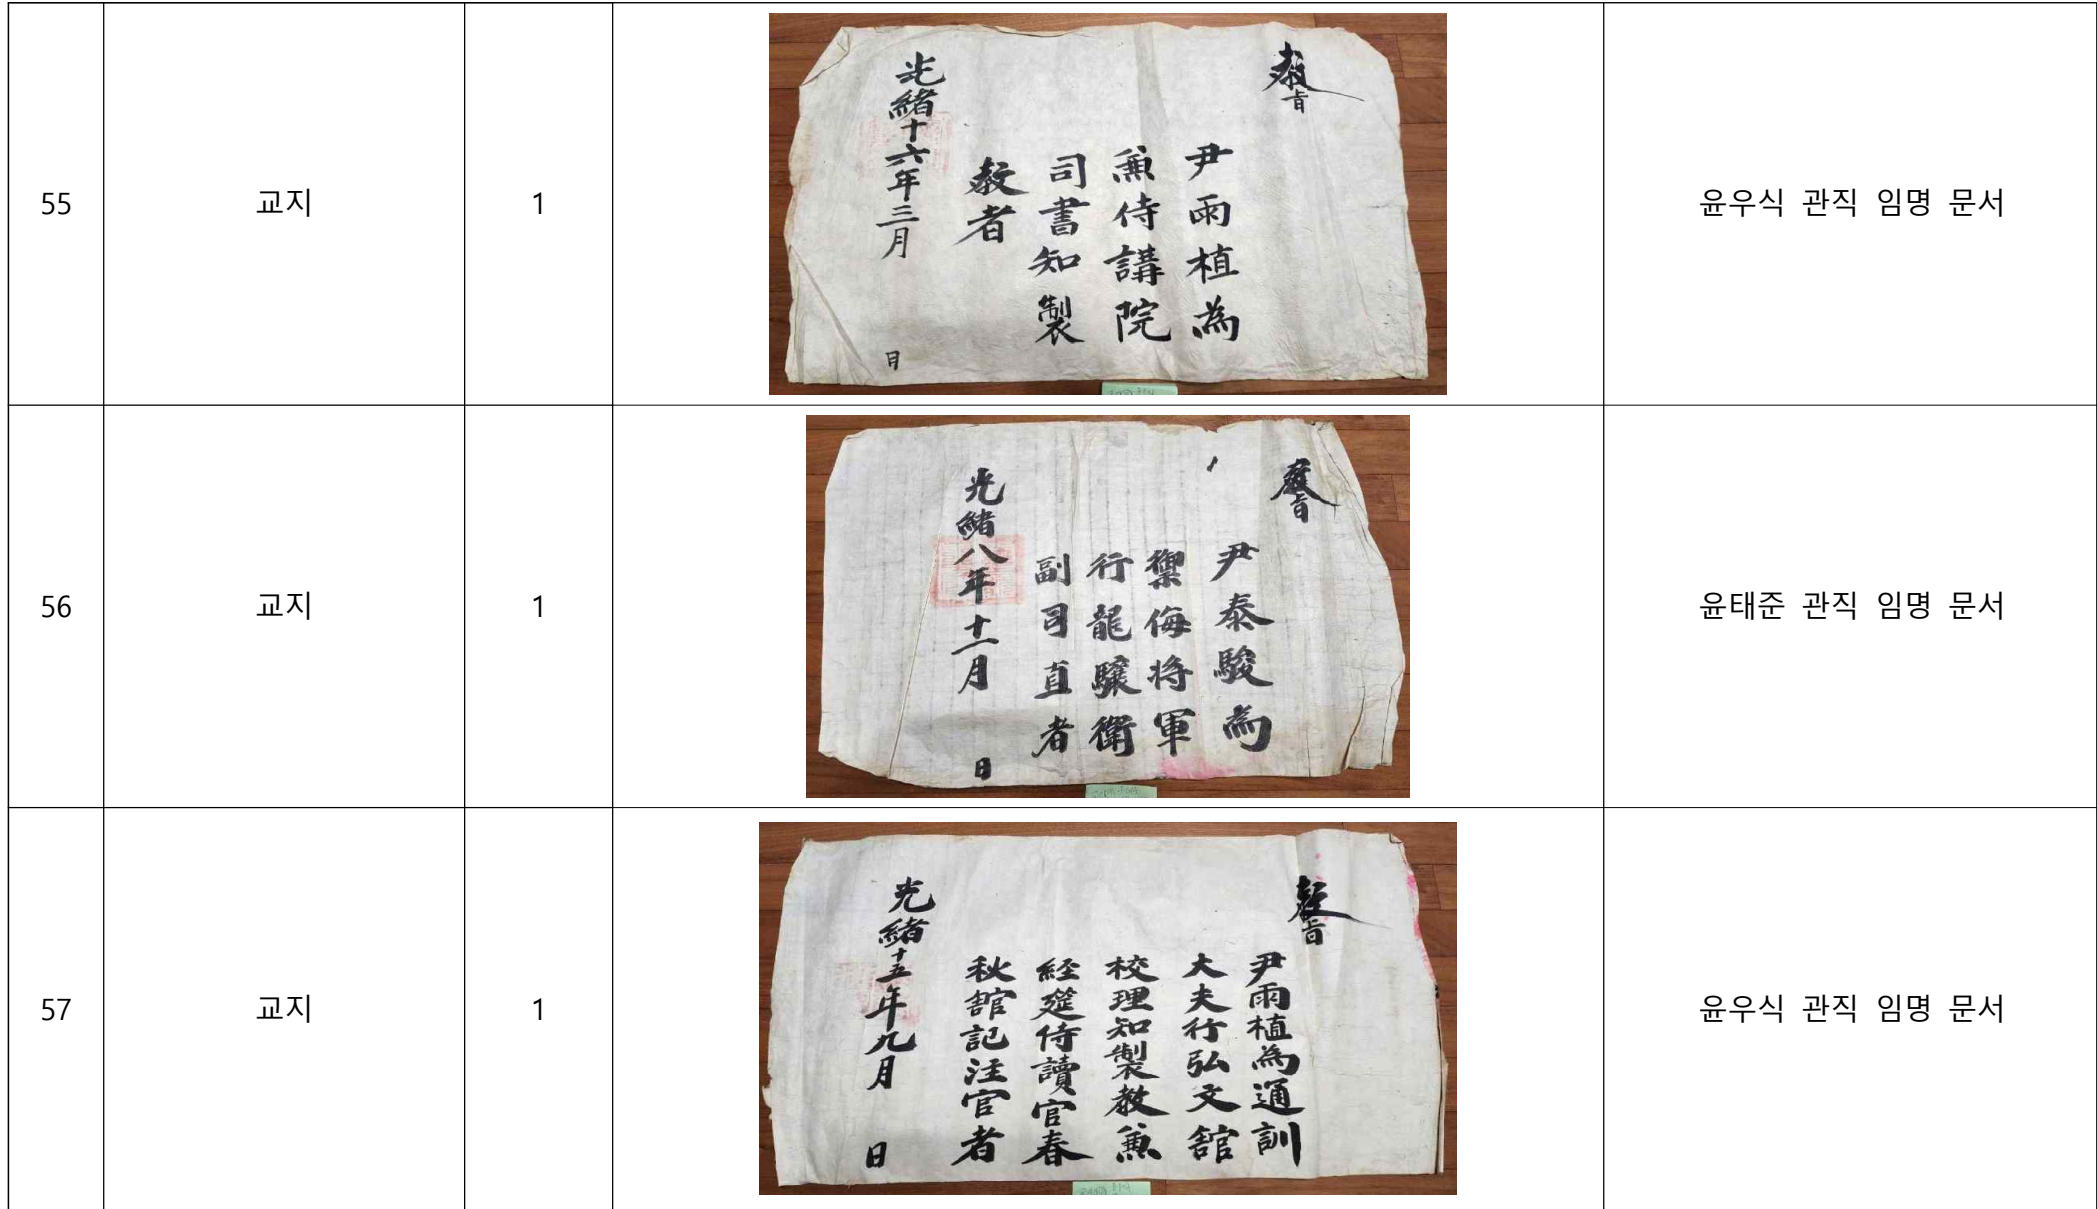 55
교지
1
敎旨
尹雨植為
兼侍講院
司書知製
敎者
光緒十六年三月 日
윤우식 관직 임명 문서
56
교지
1
敎旨
尹泰駿為
禦侮將軍
行龍驤衛
副司直者
光緒八年十一月 日
윤태준 관직 임명 문서
57
교지
1
敎旨
尹雨植為通訓
大夫行弘文館
校理知製敎兼
經筵侍讀官春
秋館記注官者
光緒十五年九月 日
윤우식 관직 임명 문서